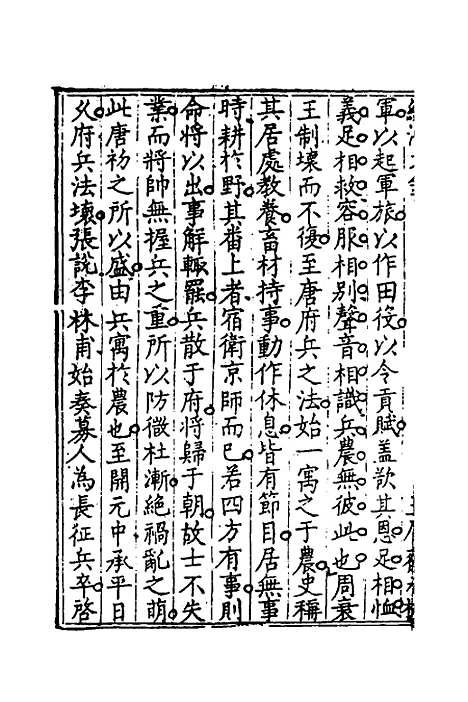 軍以起軍旅以作田役以令貢賦蓋欲其恩足相恤
義足相救容服相别聲音相識兵農無彼此也周衰
王制壞而不復至唐府兵之法始一寓之于農史稱
其居處教養畜材持事動作休息皆有節目居無事
時耕於野其番上者宿衛京師而已若四方有事則
命將以出事解輒罷兵散于府將歸于朝故士不失
業而將帥無握兵之重所以防微杜漸絶禍亂之萌
此唐初之所以盛由兵寓於農也至開元中承平日
乆府兵法壞張說李林甫始奏募人為長征兵卒啓